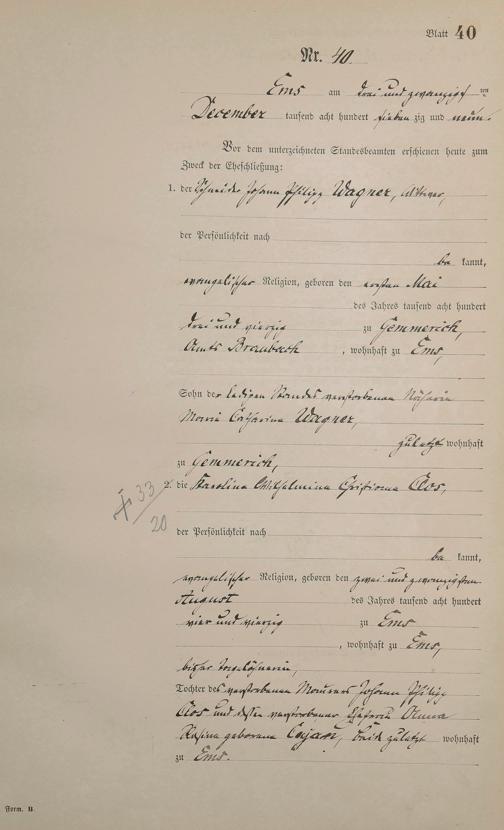 Blatt 40
Nr. 40.
Ems am drei und zwanzigsten
December tausend acht hundert sieben zig und neun.
Vor dem unterzeichneten Standesbeamten erschienen heute zum
Zweck der Eheschließung:
1. der Schneider Johann Philipp Wagner, Wittwer,
der Persönlichkeit nach
be kannt,
evangelischer Religion, geboren den ersten Mai
des Jahres tausend acht hundert
drei und vierzig zu Gemmerich,
Amts Braubach, wohnhaft zu Ems,
Sohn der ledigen Standes verstorbenen Näherin
Maria Catharina Wagner,
zuletzt wohnhaft
zu Gemmerich,
2. die Karolina Wilhelmina Christiana
der Persönlichkeit nach
be kannt,
evangelischer Religion, geboren den zwei und zwanzigsten
August des Jahres tausend acht hundert
vier und vierzig zu Ems
, wohnhaft zu Ems,
bisher Tagelöhnerin,
Tochter des verstorbenen Maurers Johann Philipp
und dessen verstorbener Ehefrau Anna
Rosina geborene beide zuletzt wohnhaft
zu Ems.
† 33
20
Form. B.